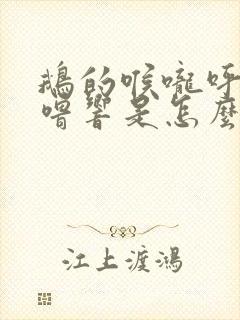 鵝的喉嚨呼
嚕響是怎麼
江上渡鴻